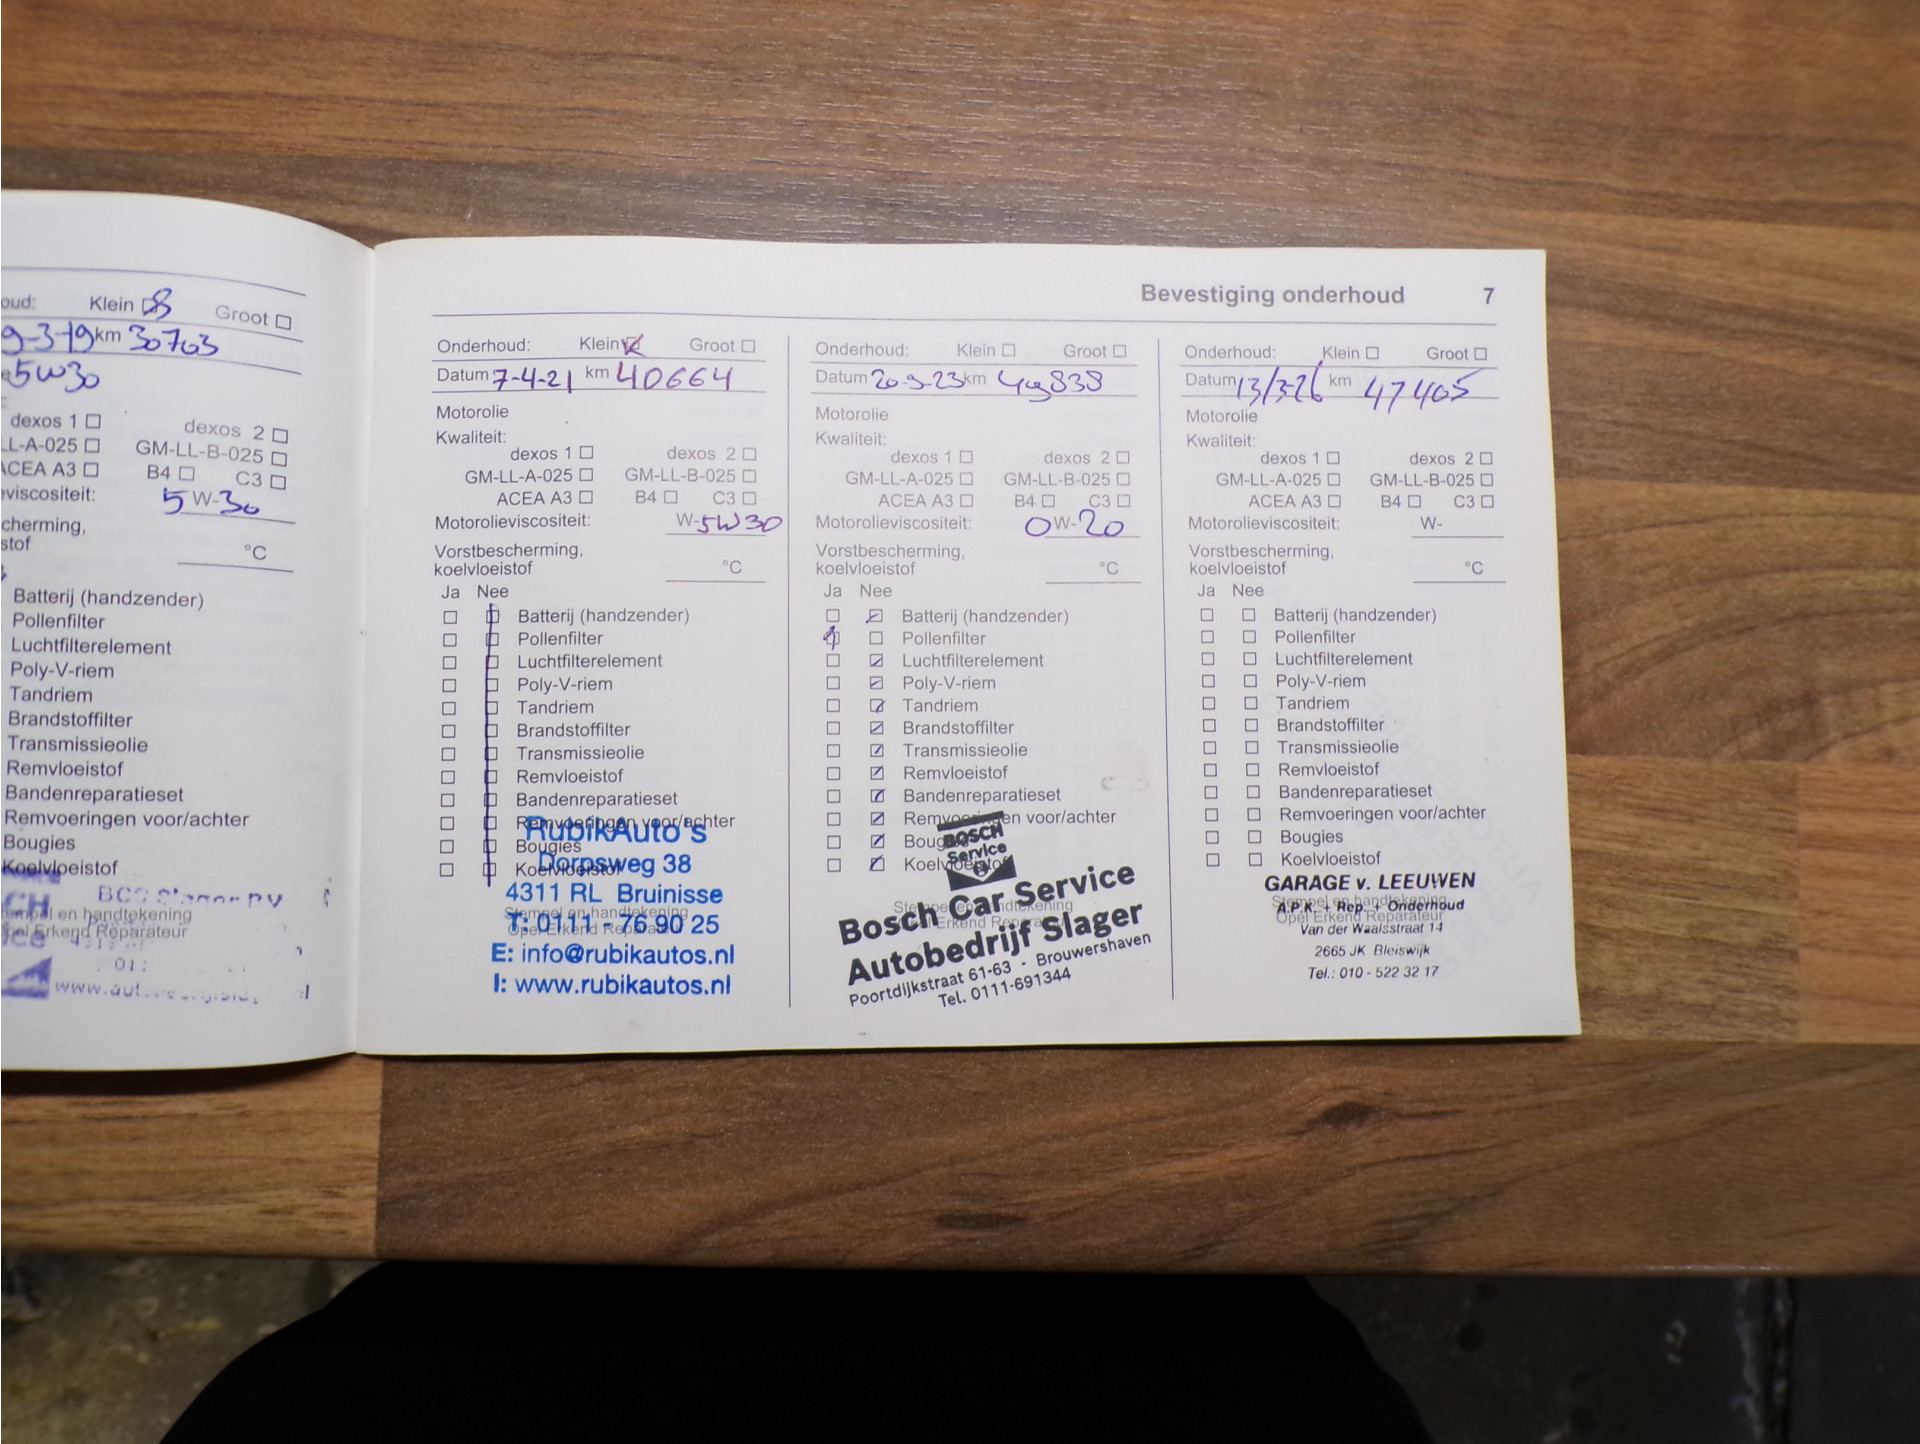 oud: Klein Groot
9-3-19 km 30703
5W30
dexos 1 dexos 2
LL-A-025 GM-LL-B-025
ACEA A3 B4 C3
viscositeit: 5 W-30
cherming,
stof °C
Batterij (handzender)
Pollenfilter
Luchtfilterelement
Poly-V-riem
Tandriem
Brandstoffilter
Transmissieolie
Remvloeistof
Bandenreparatieset
Remvoeringen voor/achter
Bougies
Koelvloeistof
en handtekening
Erkend Reparateur
Bevestiging onderhoud 7
Onderhoud: Klein Groot
Datum 7-4-21 km 40664
Motorolie
Kwaliteit:
dexos 1 dexos 2
GM-LL-A-025 GM-LL-B-025
ACEA A3 B4 C3
Motorolieviscositeit: W-5W30
Vorstbescherming,
koelvloeistof °C
Ja Nee
Batterij (handzender)
Pollenfilter
Luchtfilterelement
Poly-V-riem
Tandriem
Brandstoffilter
Transmissieolie
Remvloeistof
Bandenreparatieset
Remvoeringen voor/achter
Bougies
Koelvloeistof
Stempel en handtekening
Opel Erkend Reparateur
RubikAuto's
Dorpsweg 38
4311 RL Bruinisse
T: 0111 - 76 90 25
E: info@rubikautos.nl
I: www.rubikautos.nl
Onderhoud: Klein Groot
Datum 20-9-23 km
Motorolie
Kwaliteit:
dexos 1 dexos 2
GM-LL-A-025 GM-LL-B-025
ACEA A3 B4 C3
Motorolieviscositeit: 0 W-20
Vorstbescherming,
koelvloeistof °C
Ja Nee
Batterij (handzender)
Pollenfilter
Luchtfilterelement
Poly-V-riem
Tandriem
Brandstoffilter
Transmissieolie
Remvloeistof
Bandenreparatieset
Remvoeringen voor/achter
Bougies
Koelvloeistof
Stempel en handtekening
Opel Erkend Reparateur
BOSCH
Service
Bosch Car Service
Autobedrijf Slager
Poortdijkstraat 61-63 - Brouwershaven
Tel. 0111-691344
Onderhoud: Klein Groot
Datum 13/3-26 km 47405
Motorolie
Kwaliteit:
dexos 1 dexos 2
GM-LL-A-025 GM-LL-B-025
ACEA A3 B4 C3
Motorolieviscositeit: W-
Vorstbescherming,
koelvloeistof °C
Ja Nee
Batterij (handzender)
Pollenfilter
Luchtfilterelement
Poly-V-riem
Tandriem
Brandstoffilter
Transmissieolie
Remvloeistof
Bandenreparatieset
Remvoeringen voor/achter
Bougies
Koelvloeistof
Stempel en handtekening
Opel Erkend Reparateur
GARAGE v. LEEUWEN
A.P.K. + Rep. + Onderhoud
Van der Waalsstraat 14
2665 JK Bleiswijk
Tel.: 010 - 522 32 17